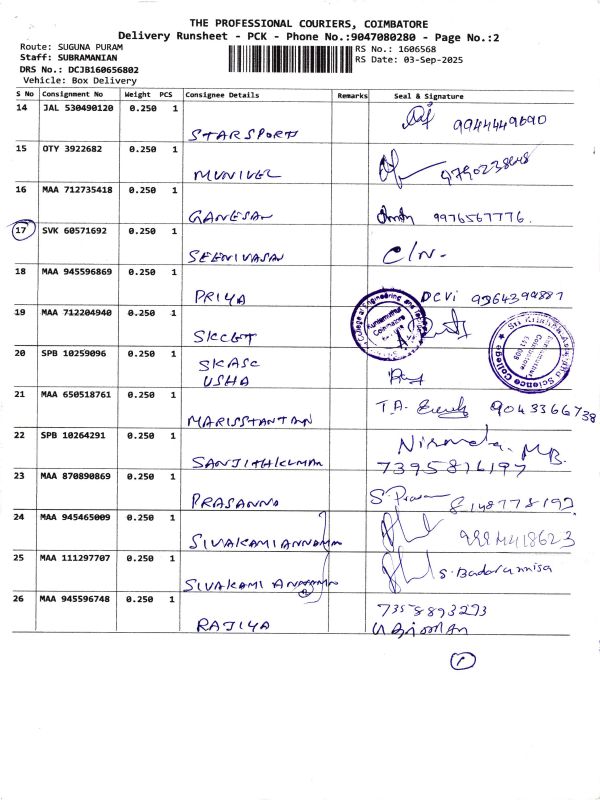 THE PROFESSIONAL COURIERS, COIMBATORE
Delivery Runsheet - PCK - Phone No.:9047080280 - Page No.:2
Route: SUGUNA PURAM
RS No.: 1606568
Staff: SUBRAMANIAN
RS Date: 03-Sep-2025
DRS No.: DCJB160656802
Vehicle: Box Delivery
S No Consignment No Weight PCS Consignee Details Remarks Seal & Signature
14 JAL 530490120 0.250 1
STARSPORTS 9944449690
15 OTY 3922682 0.250 1
MUNIVEL
16 MAA 712735418 0.250 1
GANESAN 9976567776.
17 SVK 60571692 0.250 1
SEENIVASAN C/N.
18 MAA 945596869 0.250 1
PRIYA
19 MAA 712204940 0.250 1
SKCET
20 SPB 10259096 0.250 1
SKASC
USHA
21 MAA 650518761 0.250 1
T.A. 9043366738
22 SPB 10264291 0.250 1
SANJITHKUMAR
7395816197
23 MAA 870890869 0.250 1
PRASANNA
24 MAA 945465009 0.250 1
SIVAKAMI ANNAMMA
25 MAA 111297707 0.250 1
SIVAKAMI
26 MAA 945596748 0.250 1
7358893273
RAJIYA